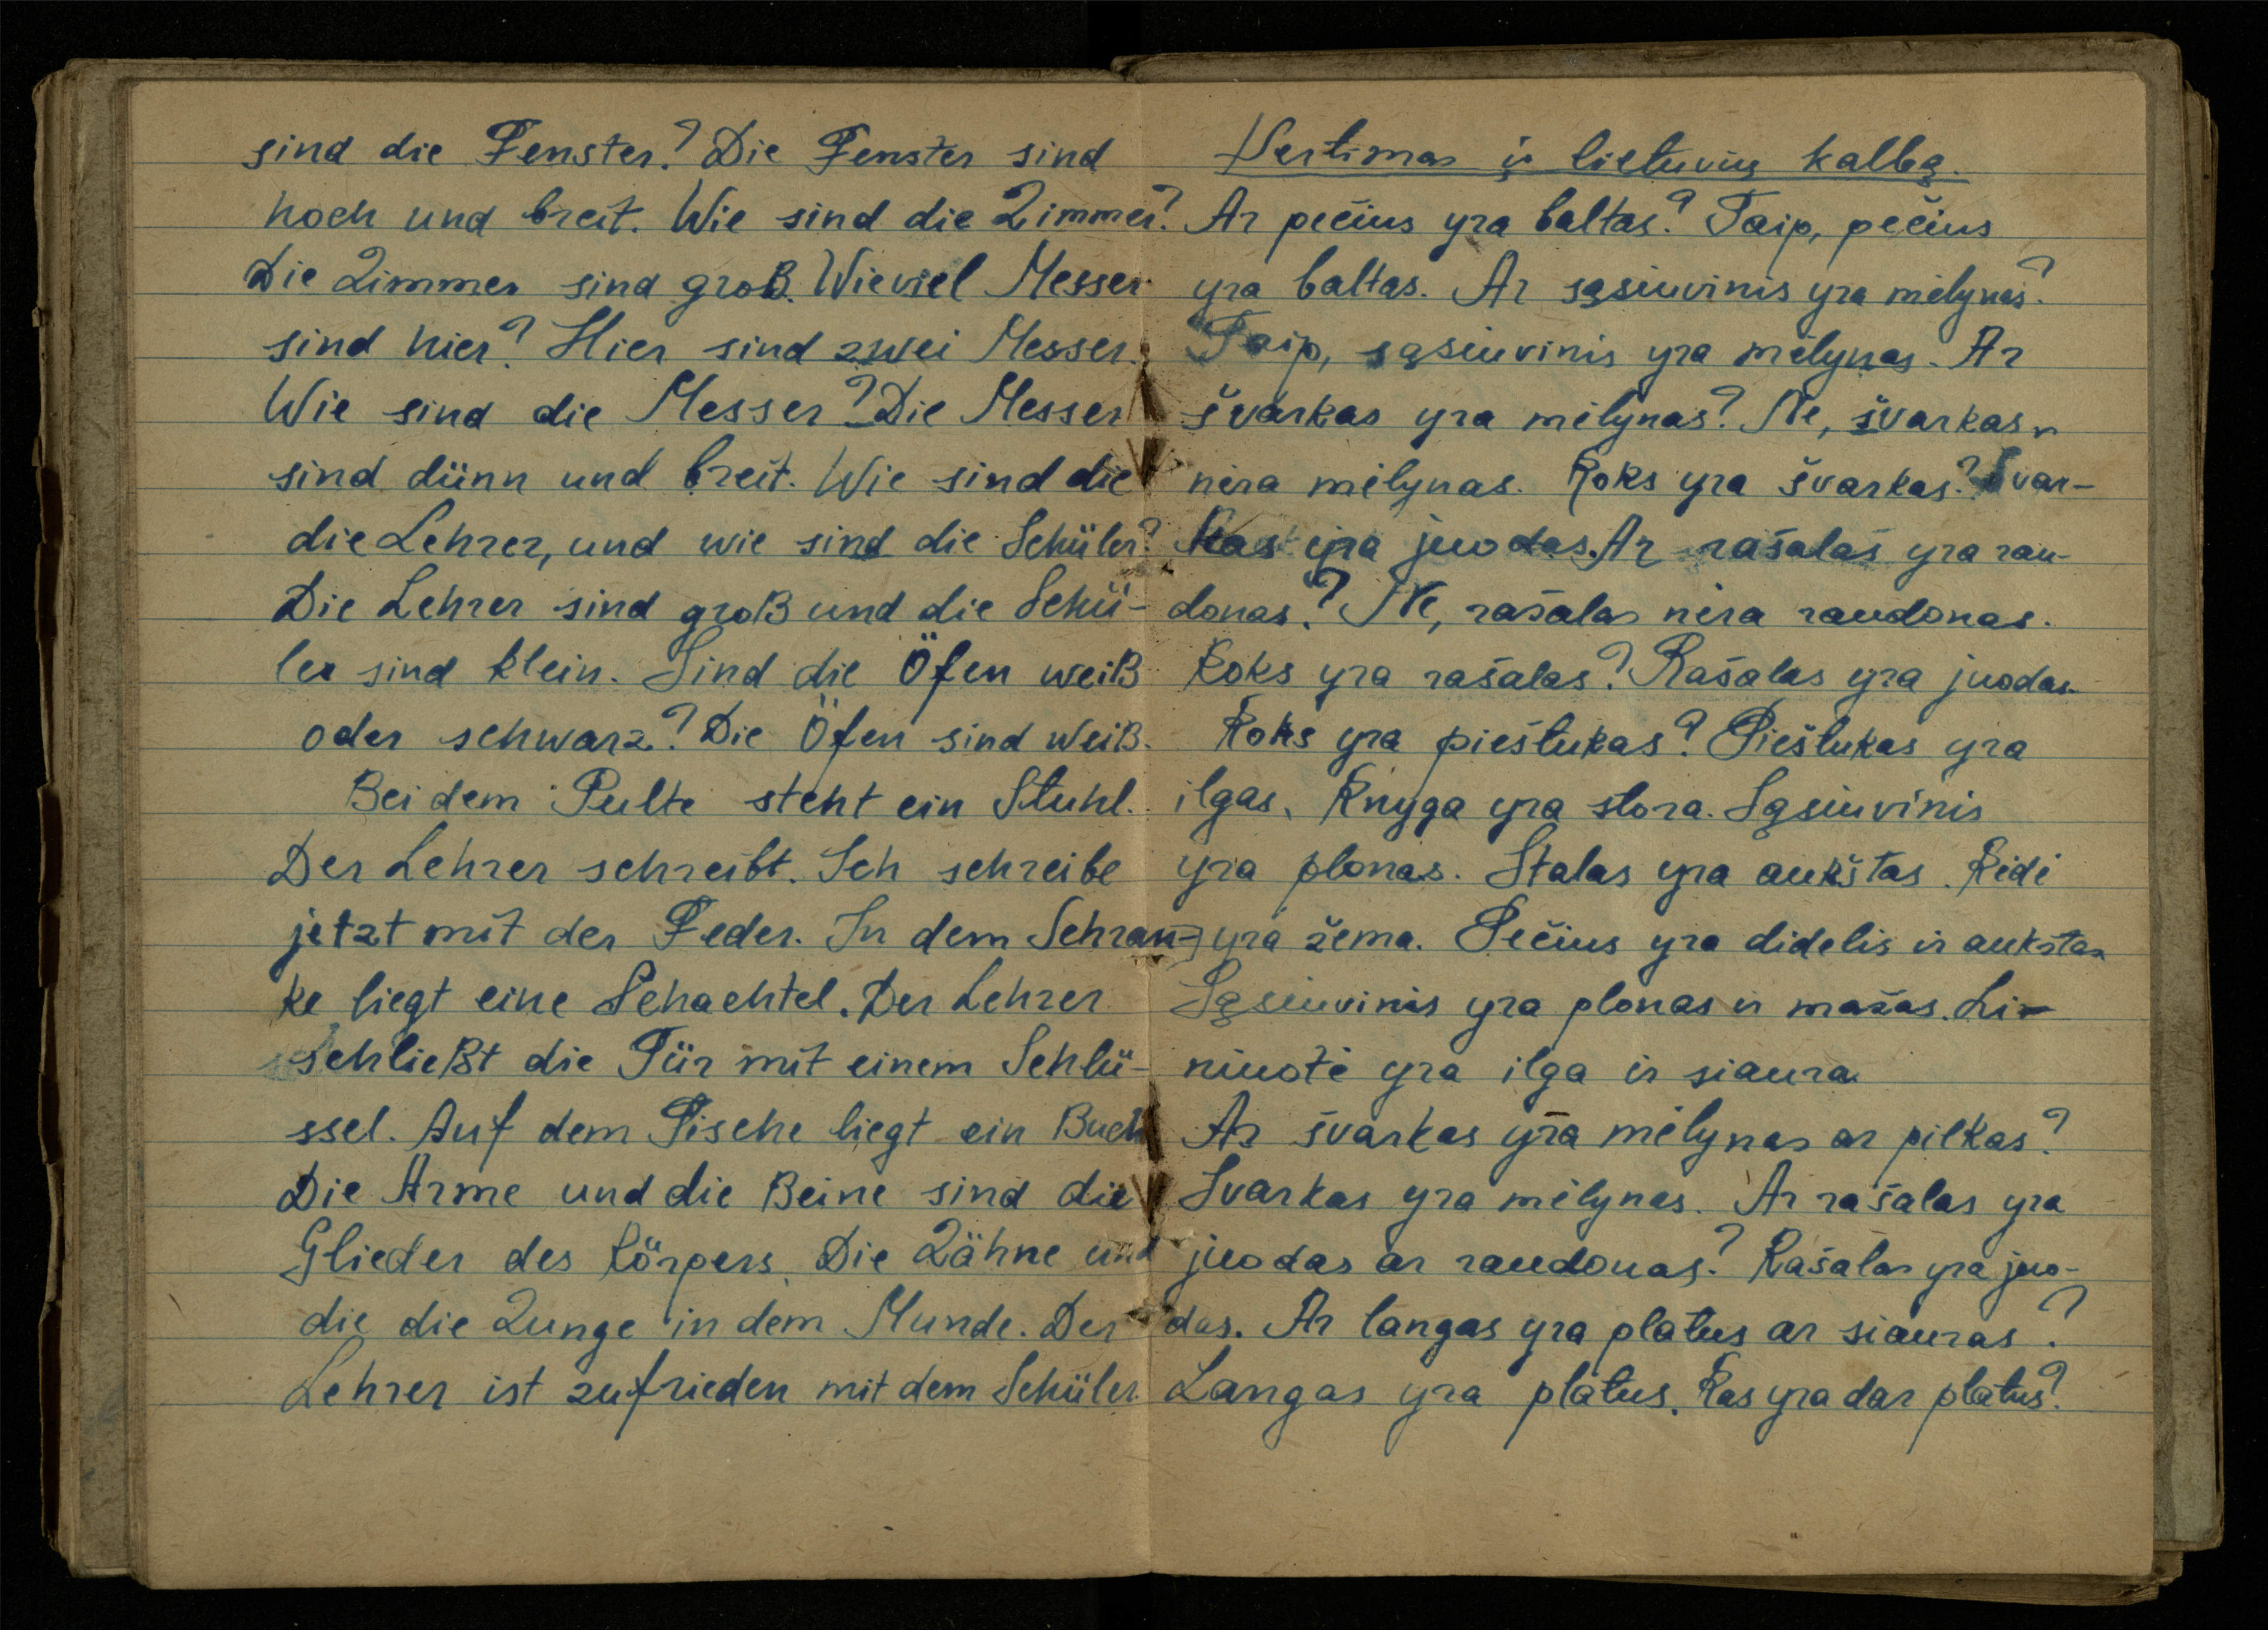 sind die Fenster? Die Fenster sind
hoch und breit. Wie sind die Zimmer?
Die Zimmer sind groß. Wieviel Messer
sind hier? Hier sind zwei Messer.
Wie sind die Messer? Die Messer
sind dünn und breit. Wie sind die
die Lehrer, und wie sind die Schüler?
Die Lehrer sind groß und die Schü-
ler sind klein. Sind die Öfen weiß
oder schwarz? Die Öfen sind weiß.
Bei dem Pulte steht ein Stuhl.
Der Lehrer schreibt. Ich schreibe
jetzt mit der Feder. In dem Schran-
ke liegt eine Schachtel. Der Lehrer
schließt die Tür mit einem Schlü-
ssel. Auf dem Tische liegt ein Buch
Die Arme und die Beine sind die
Glieder des Körpers. Die Zähne und
die die Zunge in dem Munde. Der
Lehrer ist zufrieden mit dem Schüler.
Vertimas į lietuvių kalbą.
Ar pečius yra baltas? Taip, pečius
yra baltas. Ar sąsiuvinis yra mėlynas?
Taip, sąsiuvinis yra mėlynas. Ar
švarkas yra mėlynas? Ne, švarkas
nėra mėlynas. Koks yra švarkas? Švar-
kas yra juodas. Ar rašalas yra rau-
donas? Ne, rašalas nėra raudonas.
Koks yra rašalas? Rašalas yra juodas.
Koks yra pieštukas? Pieštukas yra
ilgas. Knyga yra stora. Sąsiuvinis
yra plonas. Stalas yra aukštas. Kėdė
yra žema. Pečius yra didelis ir aukštas
Sąsiuvinis yra plonas ir mažas. Li-
niuotė yra ilga ir siaura.
Ar švarkas yra mėlynas ar pilkas?
Svarkas yra mėlynas. Ar rašalas yra
juodas ar raudonas? Rašalas yra juo-
das. Ar langas yra platus ar siauras?
Langas yra platus. Kas yra dar platus?